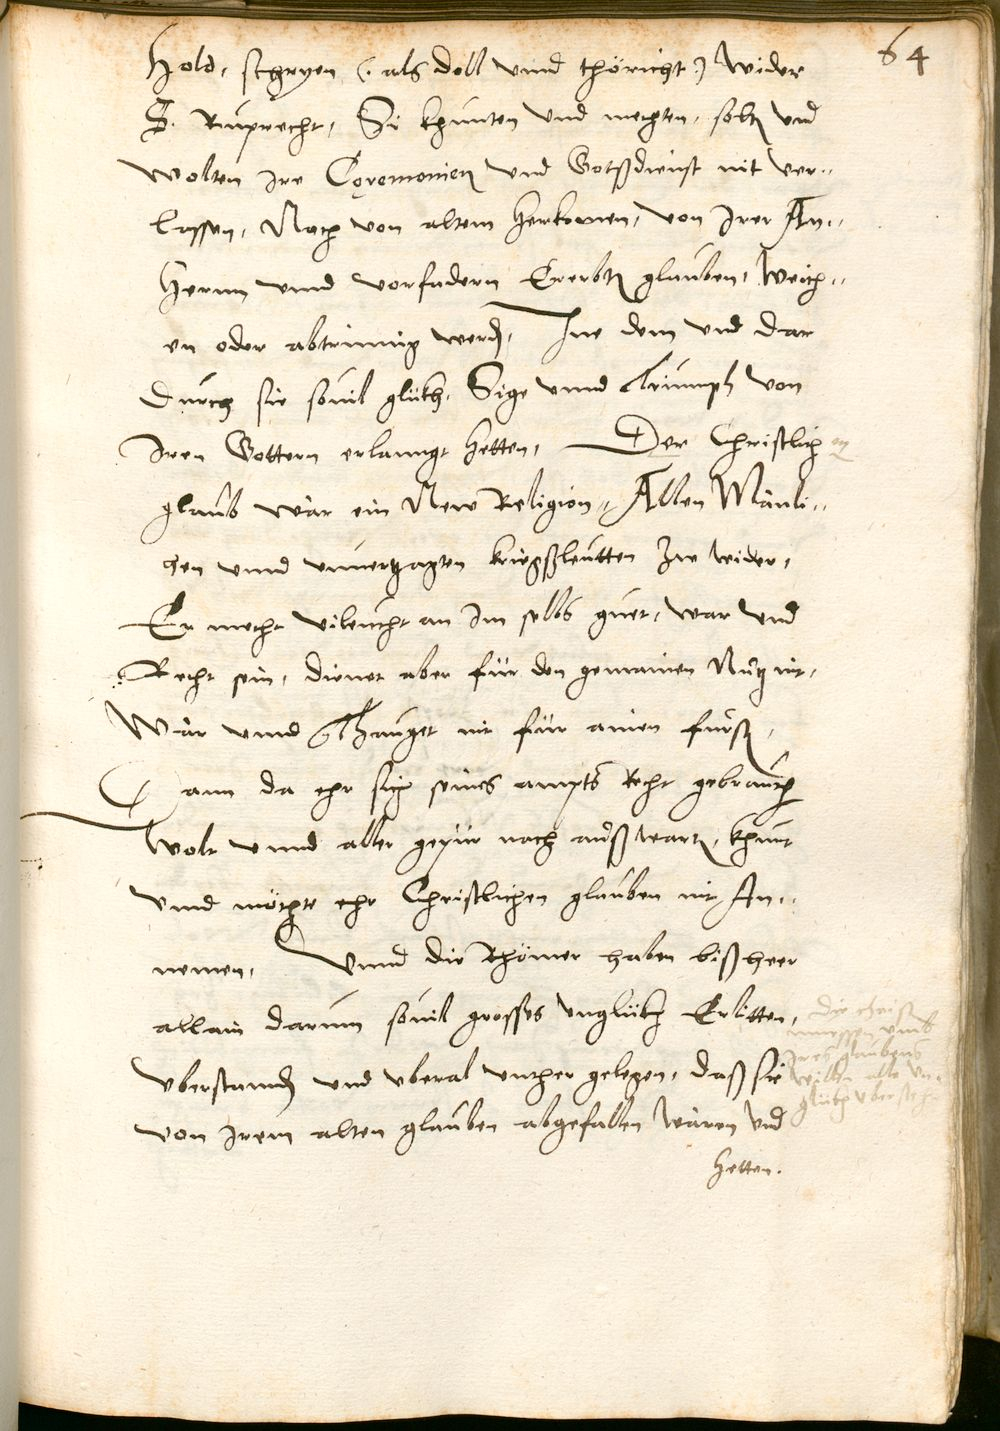 64
Hold, schryen (: als doll vnnd thöricht :) wider
S. Ruprecht, Si khunten vnd mechten, soltn vnd
wolten ire Ceremonien vnd Gotßdienst nit ver-
lassen, Noch von altem herkomen, von irer An-
herrn vnnd vorfadern Ererbtn glauben, Weich-
en oder abtrinnig werden, Inn dem vnd dar
durch sie souil glükh, Sige vnnd Triumph von
iren Gottern erlanngt hetten, Der Christlich
glaub wär ein New Religion, Allen Mänli-
chen vnnd vnuertzagten kriegßleutten Zw wider,
Er mecht vileicht an im selbs guet, war vnd
Recht sein, dienet aber für den gemainen Nutz nit,
Wär vnnd Thauget nit für ainen fürstn,
Dann da ehr sich seines ampts Recht gebrauchn
wolt vnnd aller gepür nach außwartn, khunt
vnnd möchte ehr Christlichen glauben nit An-
nemen, Vnnd die Rhömer haben bißheer
allain darum souil grosses vnglükh Erlitten,
vberstanndn vnd vberal vnther gelegen, daß sie
von irem alten glauben abgefallen wären vnd
hetten.
die christn
muessen vmb
ires glaubens
willen alle vn-
glükh vbersteh